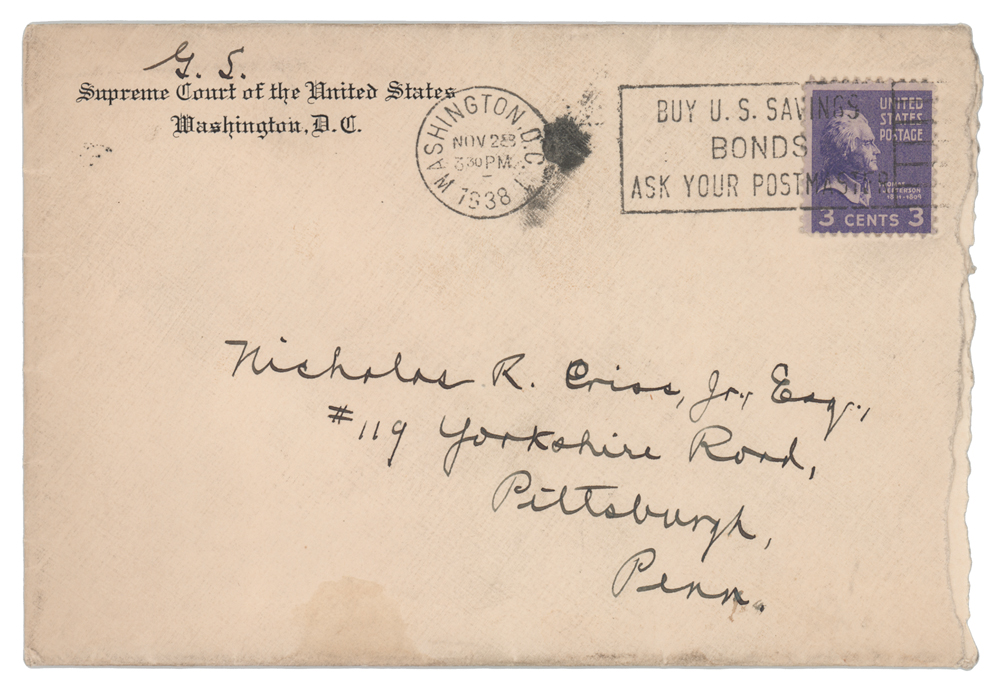 G. S.
Supreme Court of the United States
Washington, D.C.
WASHINGTON, D.C.
NOV 28
3 30 PM
1938
BUY U. S. SAVINGS
BONDS
ASK YOUR POSTMASTER
UNITED
STATES
POSTAGE
JEFFERSON
3 CENTS 3
Nicholas R. Criss, Jr., Esq.,
#119 Yorkshire Road,
Pittsburgh,
Penn.